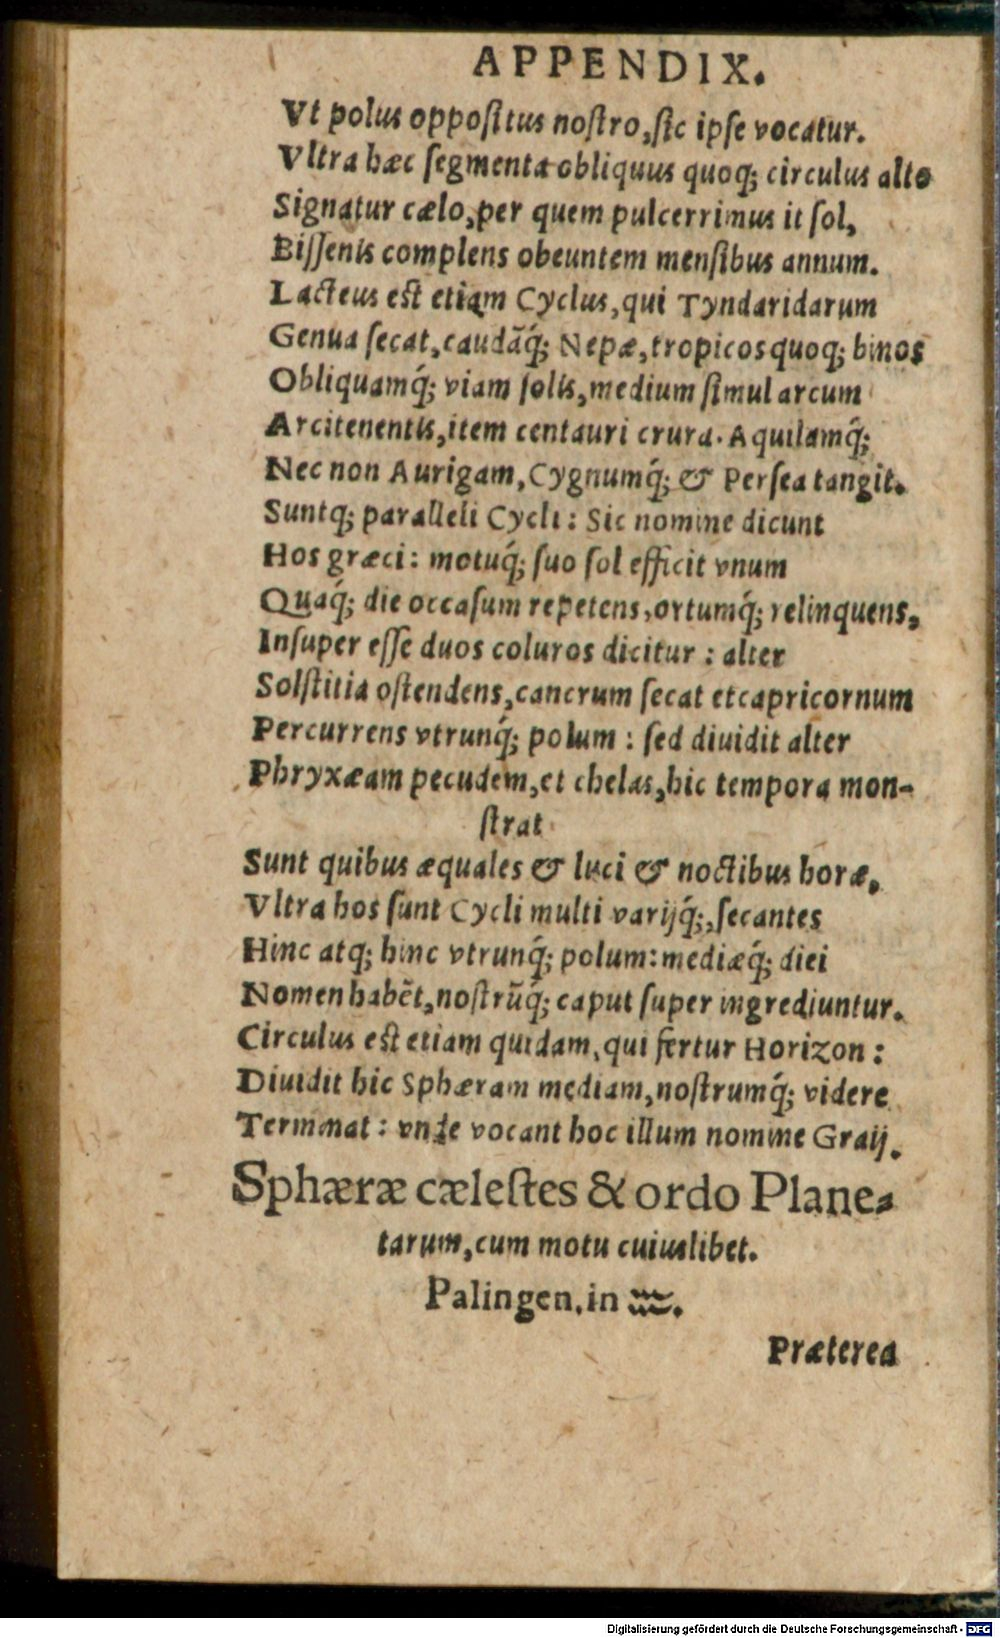 APPENDIX.
Vt polus oppoſitus noſtro, ſic ipſe vocatur.
Vltra hæc ſegmenta obliquus quoq; circulus alto
Signatur cælo, per quem pulcerrimus it ſol,
Biſſenis complens obeuntem menſibus annum.
Lacteus eſt etiam Cyclus, qui Tyndaridarum
Genua ſecat, caudãq́; Nepæ, tropicos quoq; binos
Obliquamq́; viam ſolis, medium ſimul arcum
Arcitenentis, item centauri crura. Aquilamq́;
Nec non Aurigam, Cygnumq́; & Perſea tangit.
Suntq; paralleli Cycli: Sic nomine dicunt
Hos græci: motuq́; ſuo ſol efficit vnum
Quaq́; die occaſum repetens, ortumq́; relinquens,
Inſuper eſſe duos coluros dicitur: alter
Solſtitia oſtendens, cancrum ſecat et capricornum
Percurrens vtrunq́; polum: ſed diuidit alter
Phryxæam pecudem, et chelas, hic tempora mon-
ſtrat
Sunt quibus æquales & luci & noctibus horæ.
Vltra hos ſunt Cycli multi varijq́;, ſecantes
Hinc atq; hinc vtrunq́; polum: mediæq́; diei
Nomen habẽt, noſtrũq́; caput ſuper ingrediuntur.
Circulus eſt etiam quidam, qui fertur Horizon:
Diuidit hic Sphæram mediam, noſtrumq́; videre
Terminat: vnde vocant hoc illum nomine Graij.
Sphæræ cæleſtes & ordo Plane-
tarum, cum motu cuiuslibet.
Palingen. in ♒.
Præterea
Digitalisierung gefördert durch die Deutsche Forschungsgemeinschaft - DFG